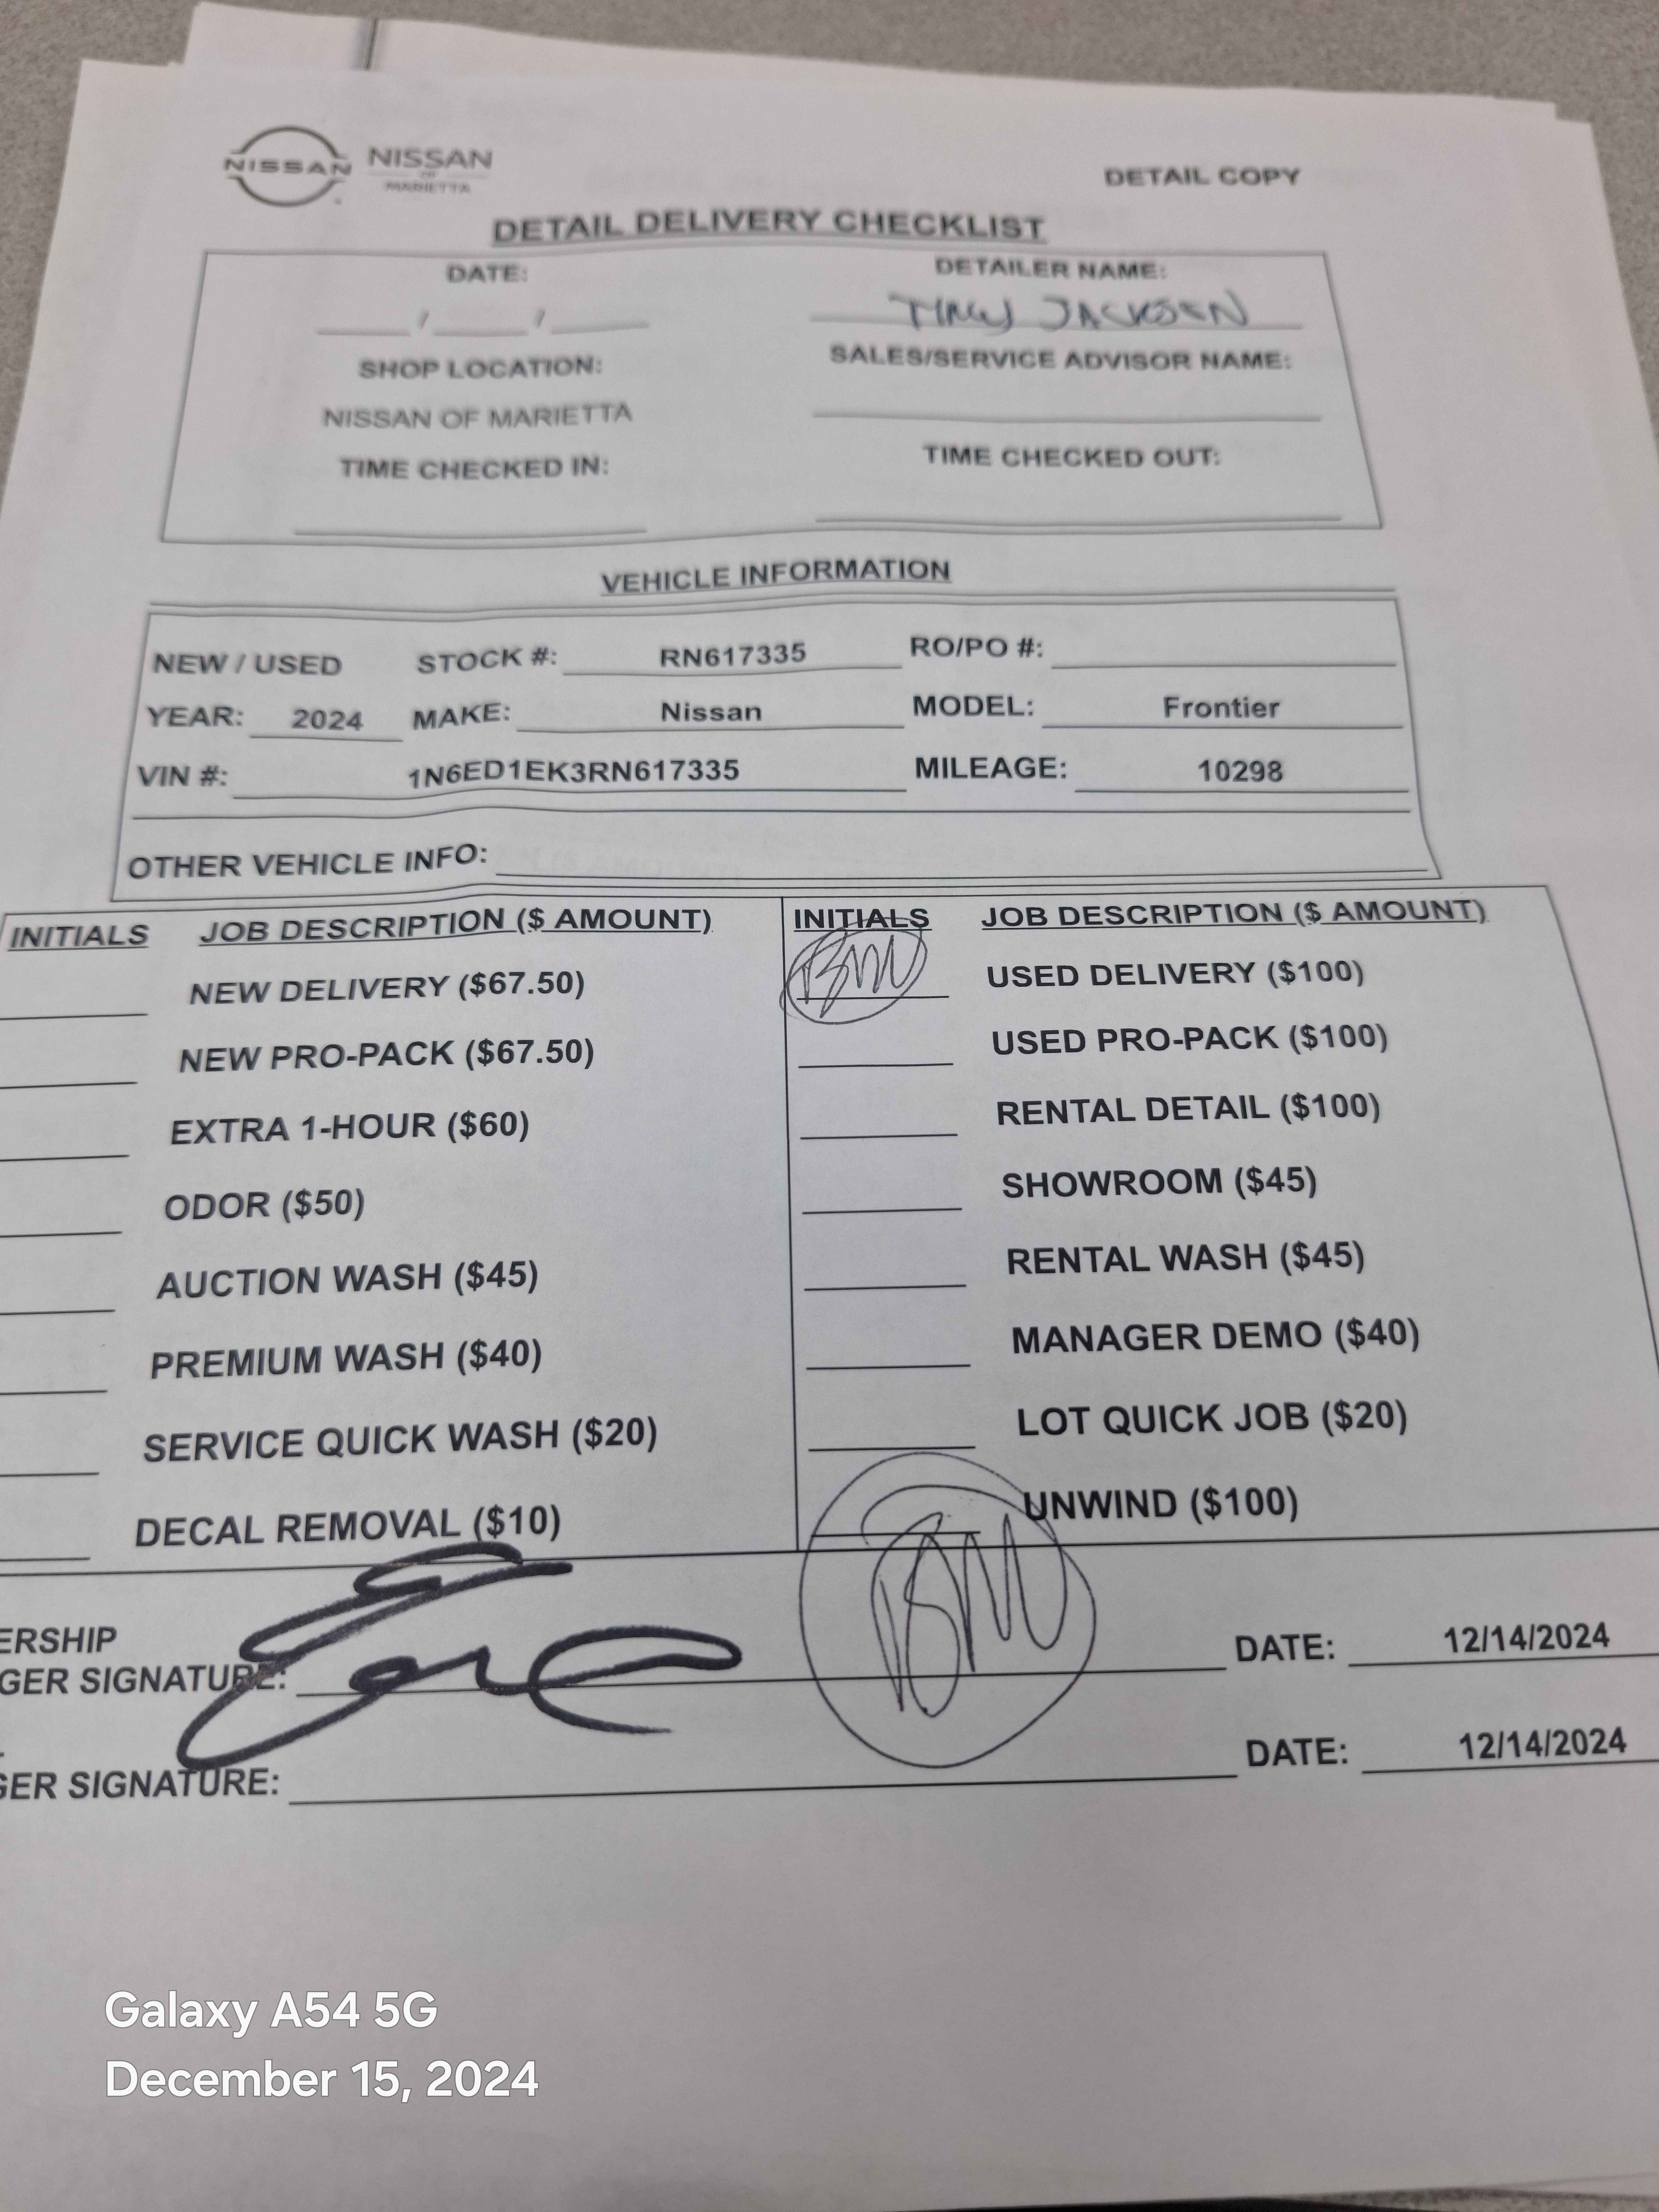 NISSAN
NISSAN
OF
MARIETTA
DETAIL COPY
DETAIL DELIVERY CHECKLIST
DATE:
DETAILER NAME:
/ /
JACKSEN
SHOP LOCATION:
SALES/SERVICE ADVISOR NAME:
NISSAN OF MARIETTA
TIME CHECKED IN:
TIME CHECKED OUT:
VEHICLE INFORMATION
NEW / USED STOCK #: RN617335 RO/PO #:
YEAR: 2024 MAKE: Nissan MODEL: Frontier
VIN #: 1N6ED1EK3RN617335 MILEAGE: 10298
OTHER VEHICLE INFO:
INITIALS JOB DESCRIPTION ($ AMOUNT) INITIALS JOB DESCRIPTION ($ AMOUNT)
NEW DELIVERY ($67.50) BM USED DELIVERY ($100)
NEW PRO-PACK ($67.50) USED PRO-PACK ($100)
EXTRA 1-HOUR ($60) RENTAL DETAIL ($100)
ODOR ($50) SHOWROOM ($45)
AUCTION WASH ($45) RENTAL WASH ($45)
PREMIUM WASH ($40) MANAGER DEMO ($40)
SERVICE QUICK WASH ($20) LOT QUICK JOB ($20)
DECAL REMOVAL ($10) UNWIND ($100)
BM
ERSHIP
GER SIGNATURE: DATE: 12/14/2024
GER SIGNATURE: DATE: 12/14/2024
Galaxy A54 5G
December 15, 2024